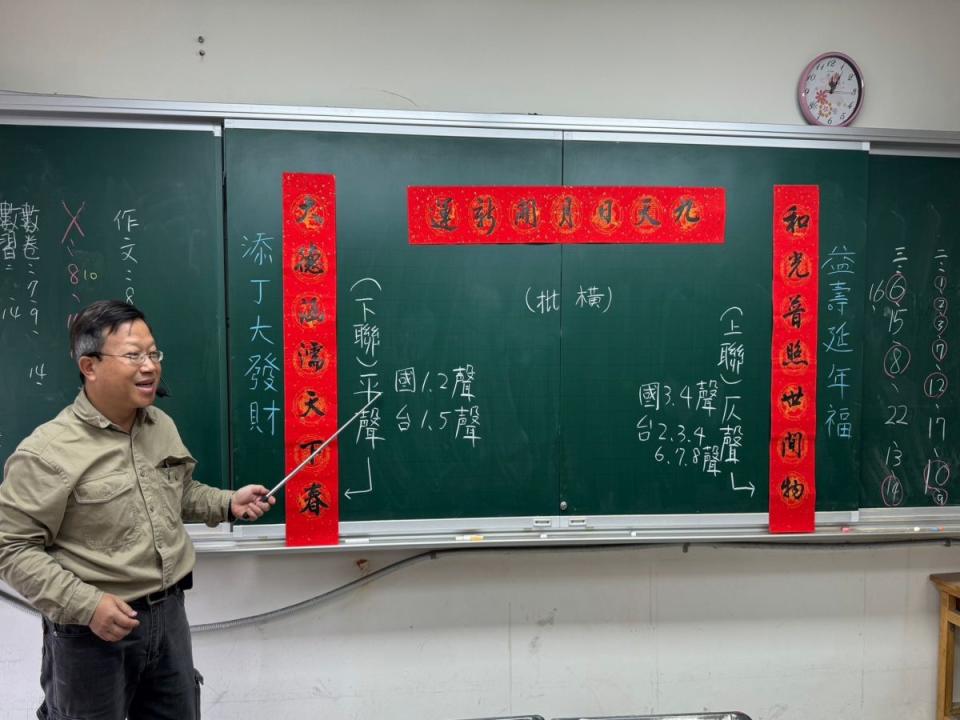 九天日月開新運
(橫批)
和光普照世間物
益壽延年福
(上聯)仄聲
國3.4聲
台2.3.4
6.7.8聲
大德涵濡天下春
添丁大發財
(下聯)平聲
國1.2聲
台1.5聲
二:①②③⑦⑫、17、⑩⑨
三:⑥15⑧22 13⑭
16、
作文:8
8 10
數卷:7、9、14、
數習:14